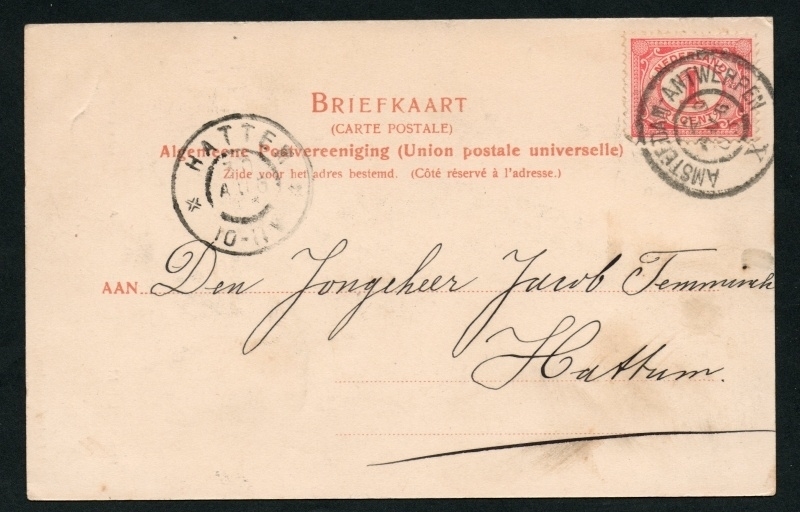 NEDERLAND
1
CENT
AMSTERDAM ANTWERPEN
BRIEFKAART
(CARTE POSTALE)
Algemeene Postvereeniging (Union postale universelle)
Zijde voor het adres bestemd. (Côté réservé à l'adresse.)
HATTEM
AUG
10-11V
AAN Den Jongeheer Jacob Temminck
Hattum.